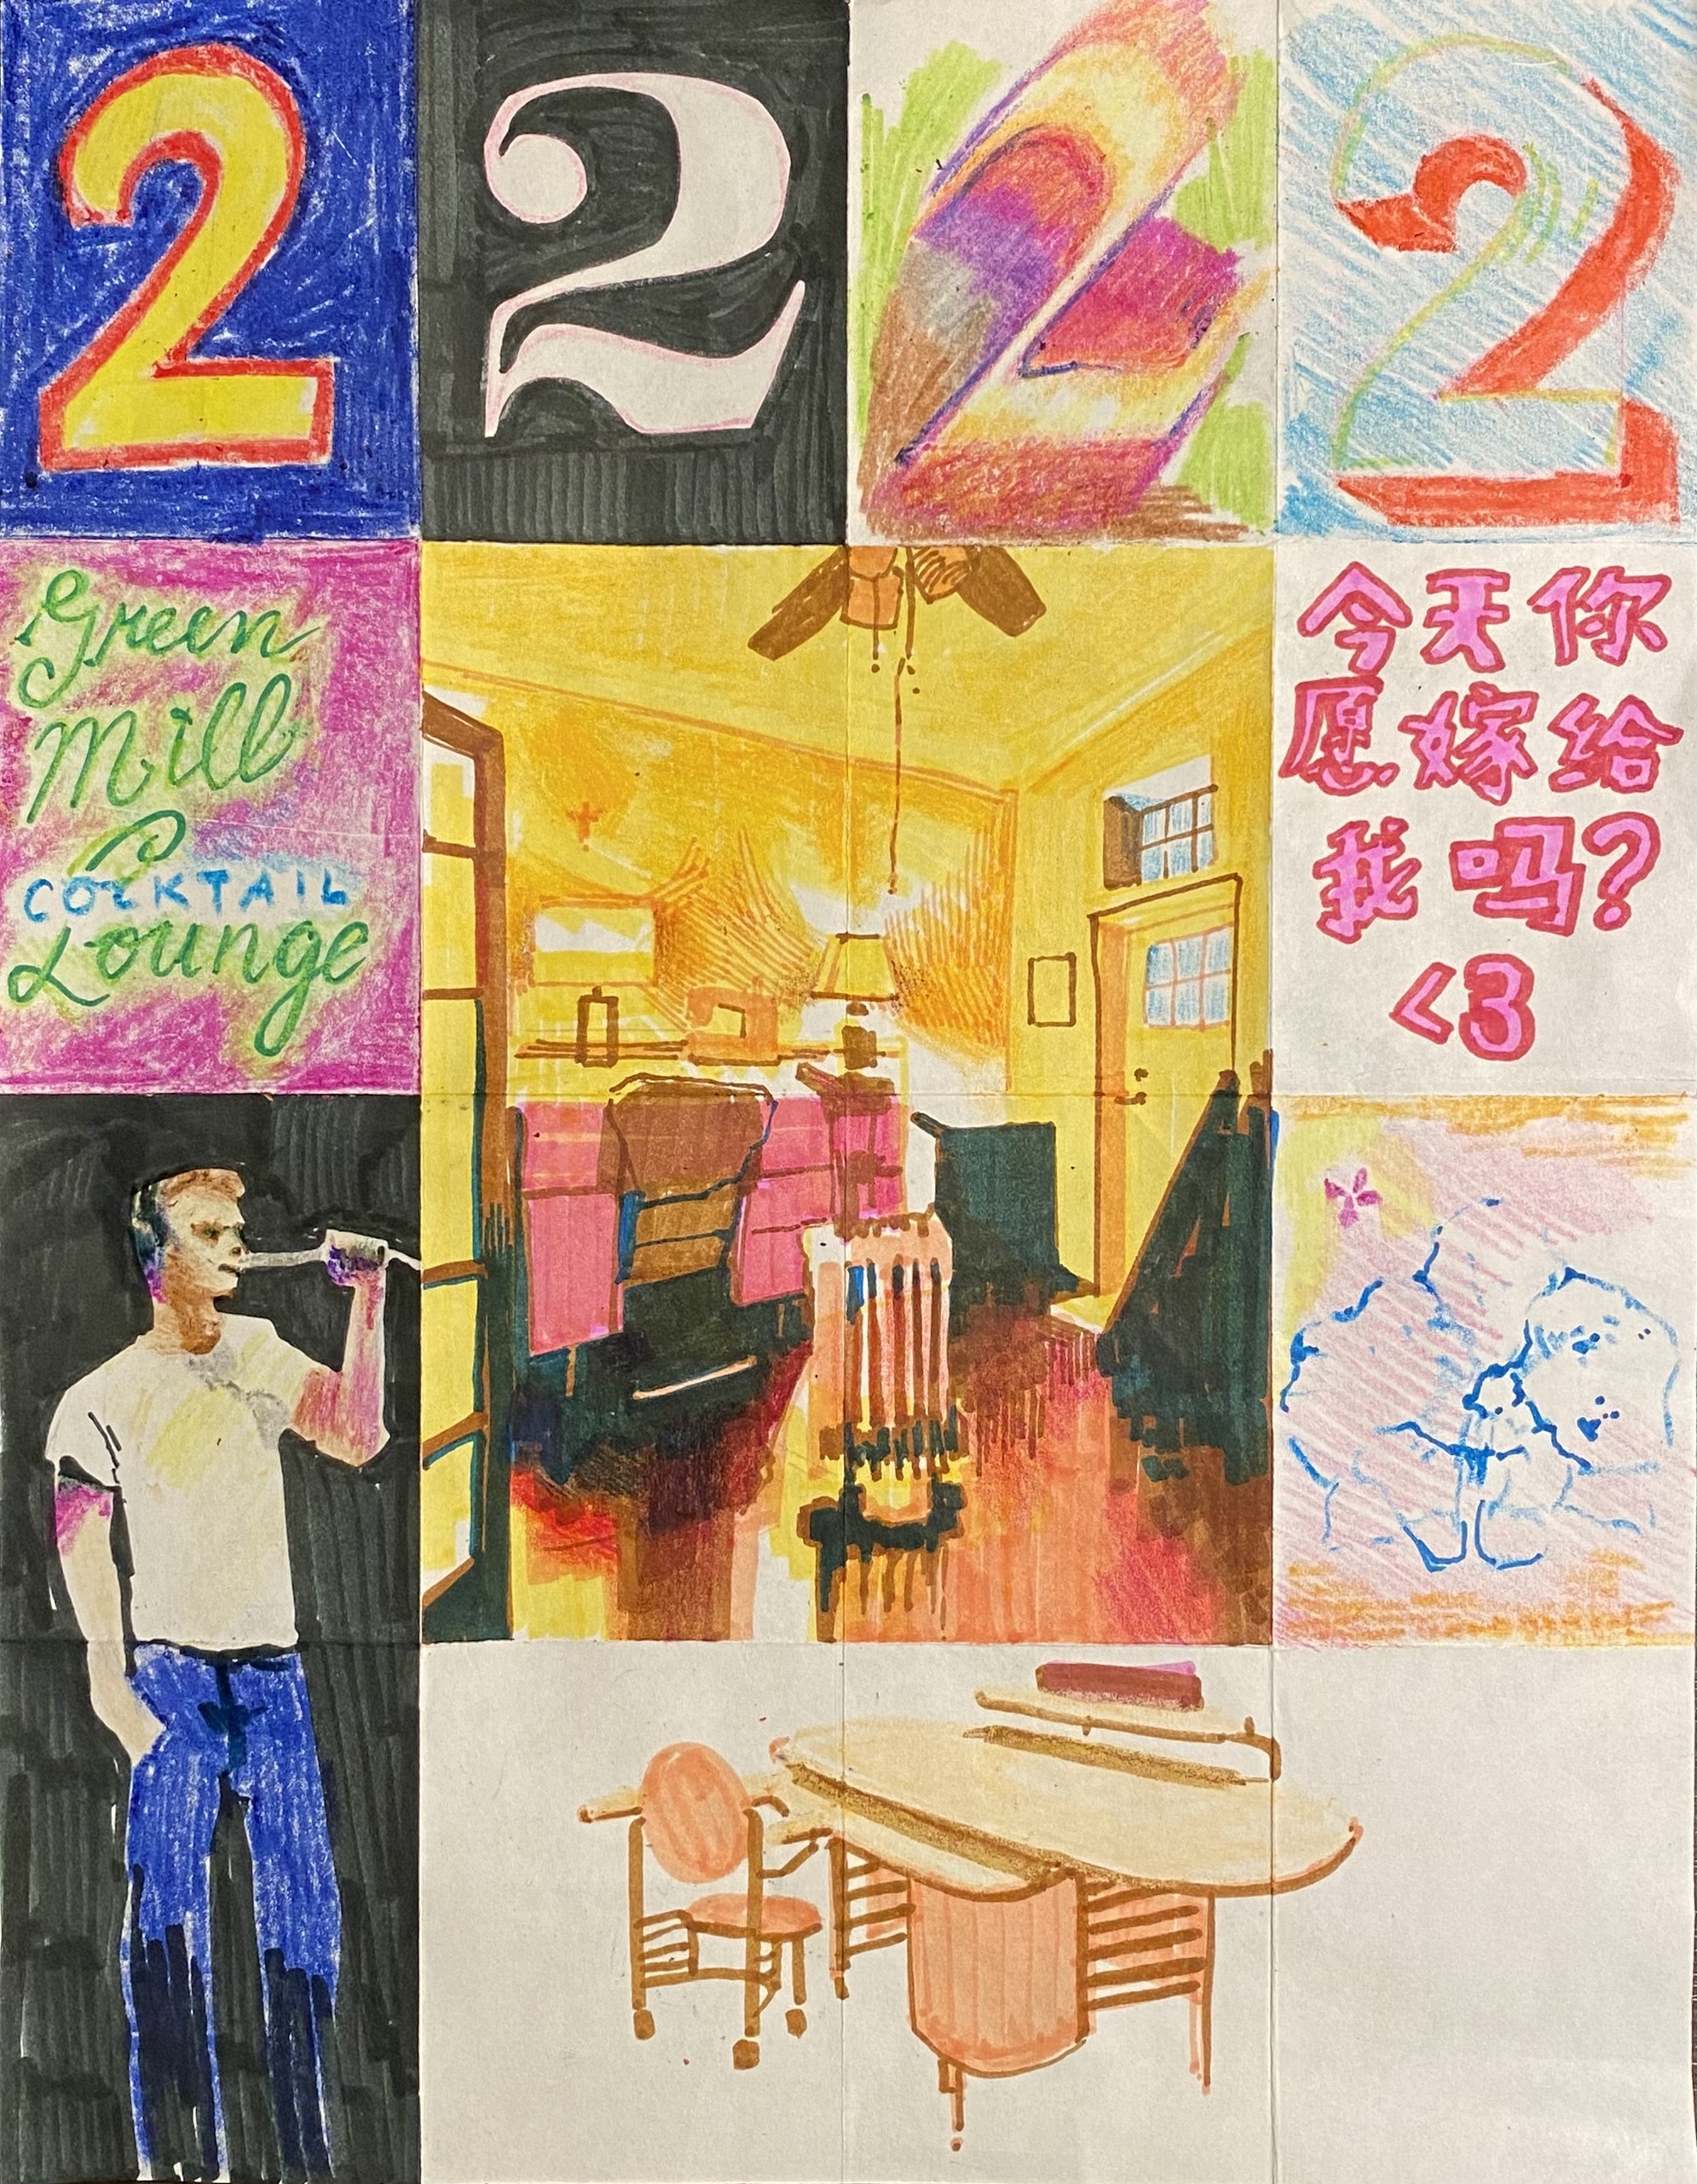 2 2 2 2
Green
Mill
COCKTAIL
Lounge
今天你
愿嫁给
我吗?
<3